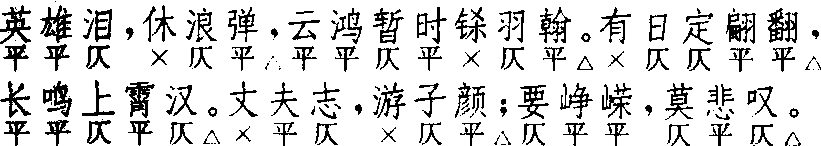 英雄泪，休浪弹，云鸿暂时铩羽翰。有日定翩翻，
平平仄 ×仄平△平平仄平×仄平△×仄仄平平△
长鸣上霄汉。丈夫志，游子颜；要峥嵘，莫悲叹。
平平仄平仄△×平仄 ×仄平△仄平平 仄平仄△